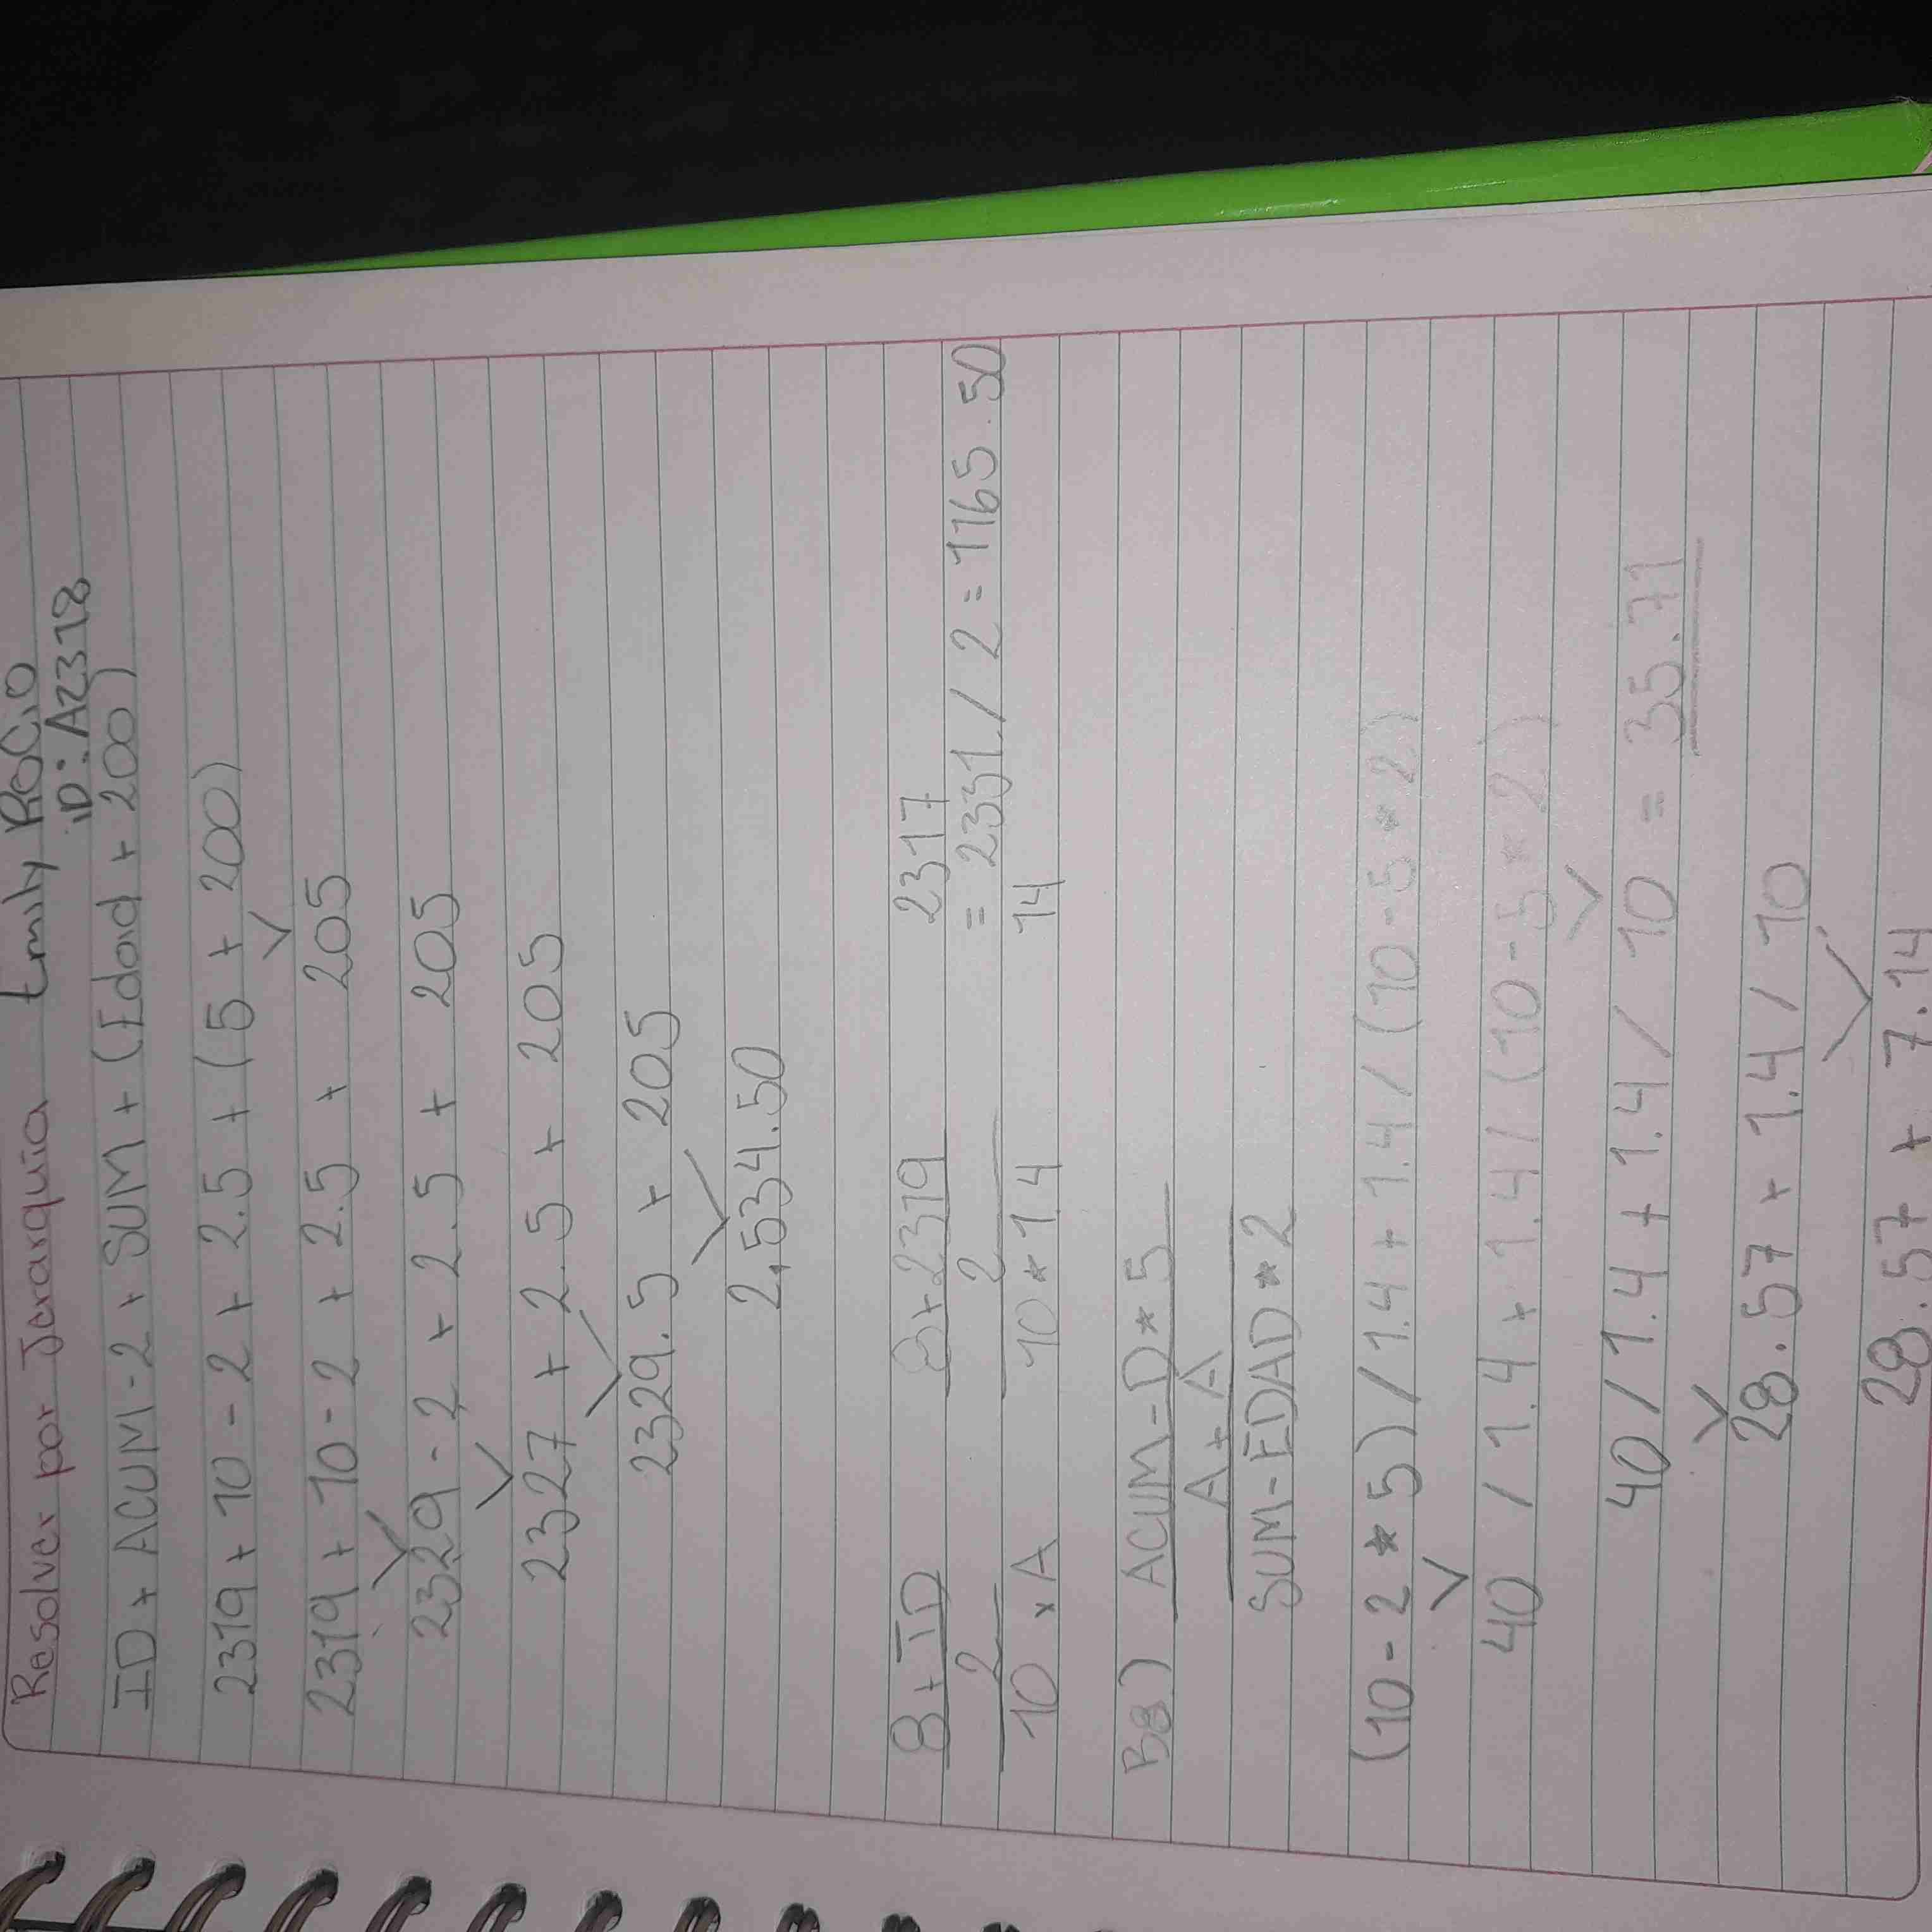 Resolver por Jerarquía Emily Rocio
iD: A2318
ID + ACUM - 2 + SUM + (Edad + 200)
2319 + 10 - 2 + 2.5 + (5 + 200)
2319 + 10 - 2 + 2.5 + 205
2329 - 2 + 2.5 + 205
2327 + 2.5 + 205
2329.5 + 205
2,534.50
8 + ID 8 + 2319 2317
2 2 = 2331 / 2 = 1165.50
10 x A 10 * 1.4 14
B8) ACUM - D * 5
A + A
SUM - EDAD * 2
(10 - 2 * 5) / 1.4 + 1.4 / (10 - 5 * 2)
40 / 1.4 + 1.4 / (10 - 5 * 2)
40 / 1.4 + 1.4 / 10 = 35.71
28.57 + 1.4 / 10
28.57 + 7.14